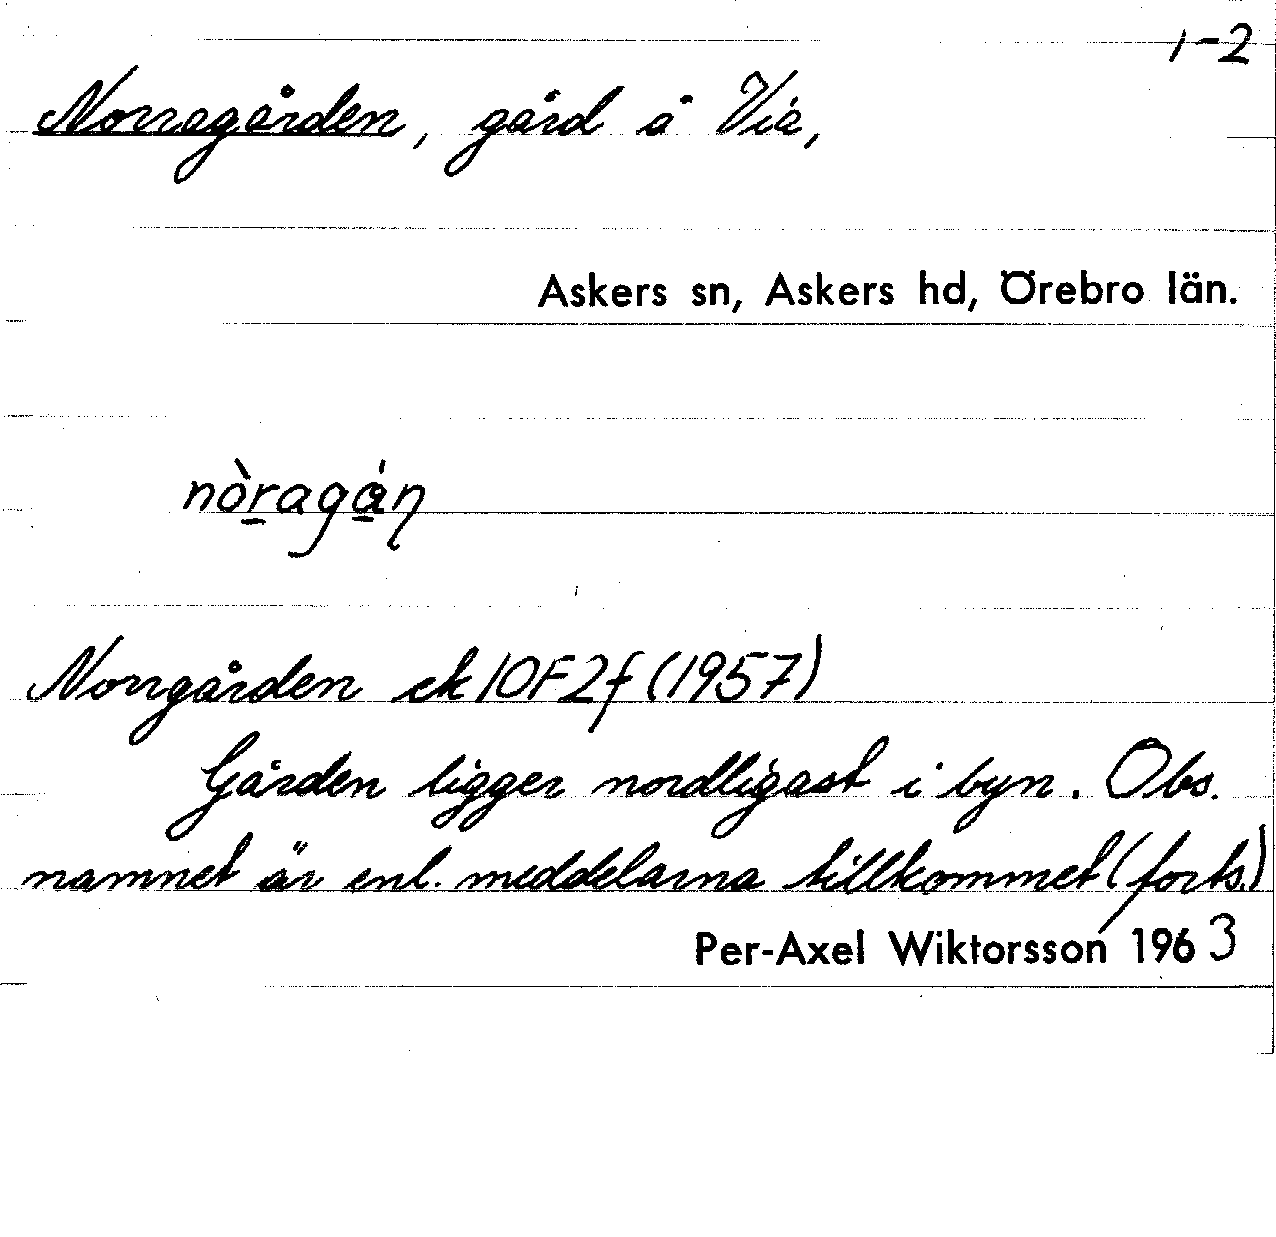 1-2
Norragården, gård å Via,
Askers sn, Askers hd, Örebro län.
nòragán
Norrgården ek 10F2f (1957)
Gården ligger nordligast i byn. Obs.
namnet är enl. meddelarna tillkommet (forts.)
Per-Axel Wiktorsson 1963